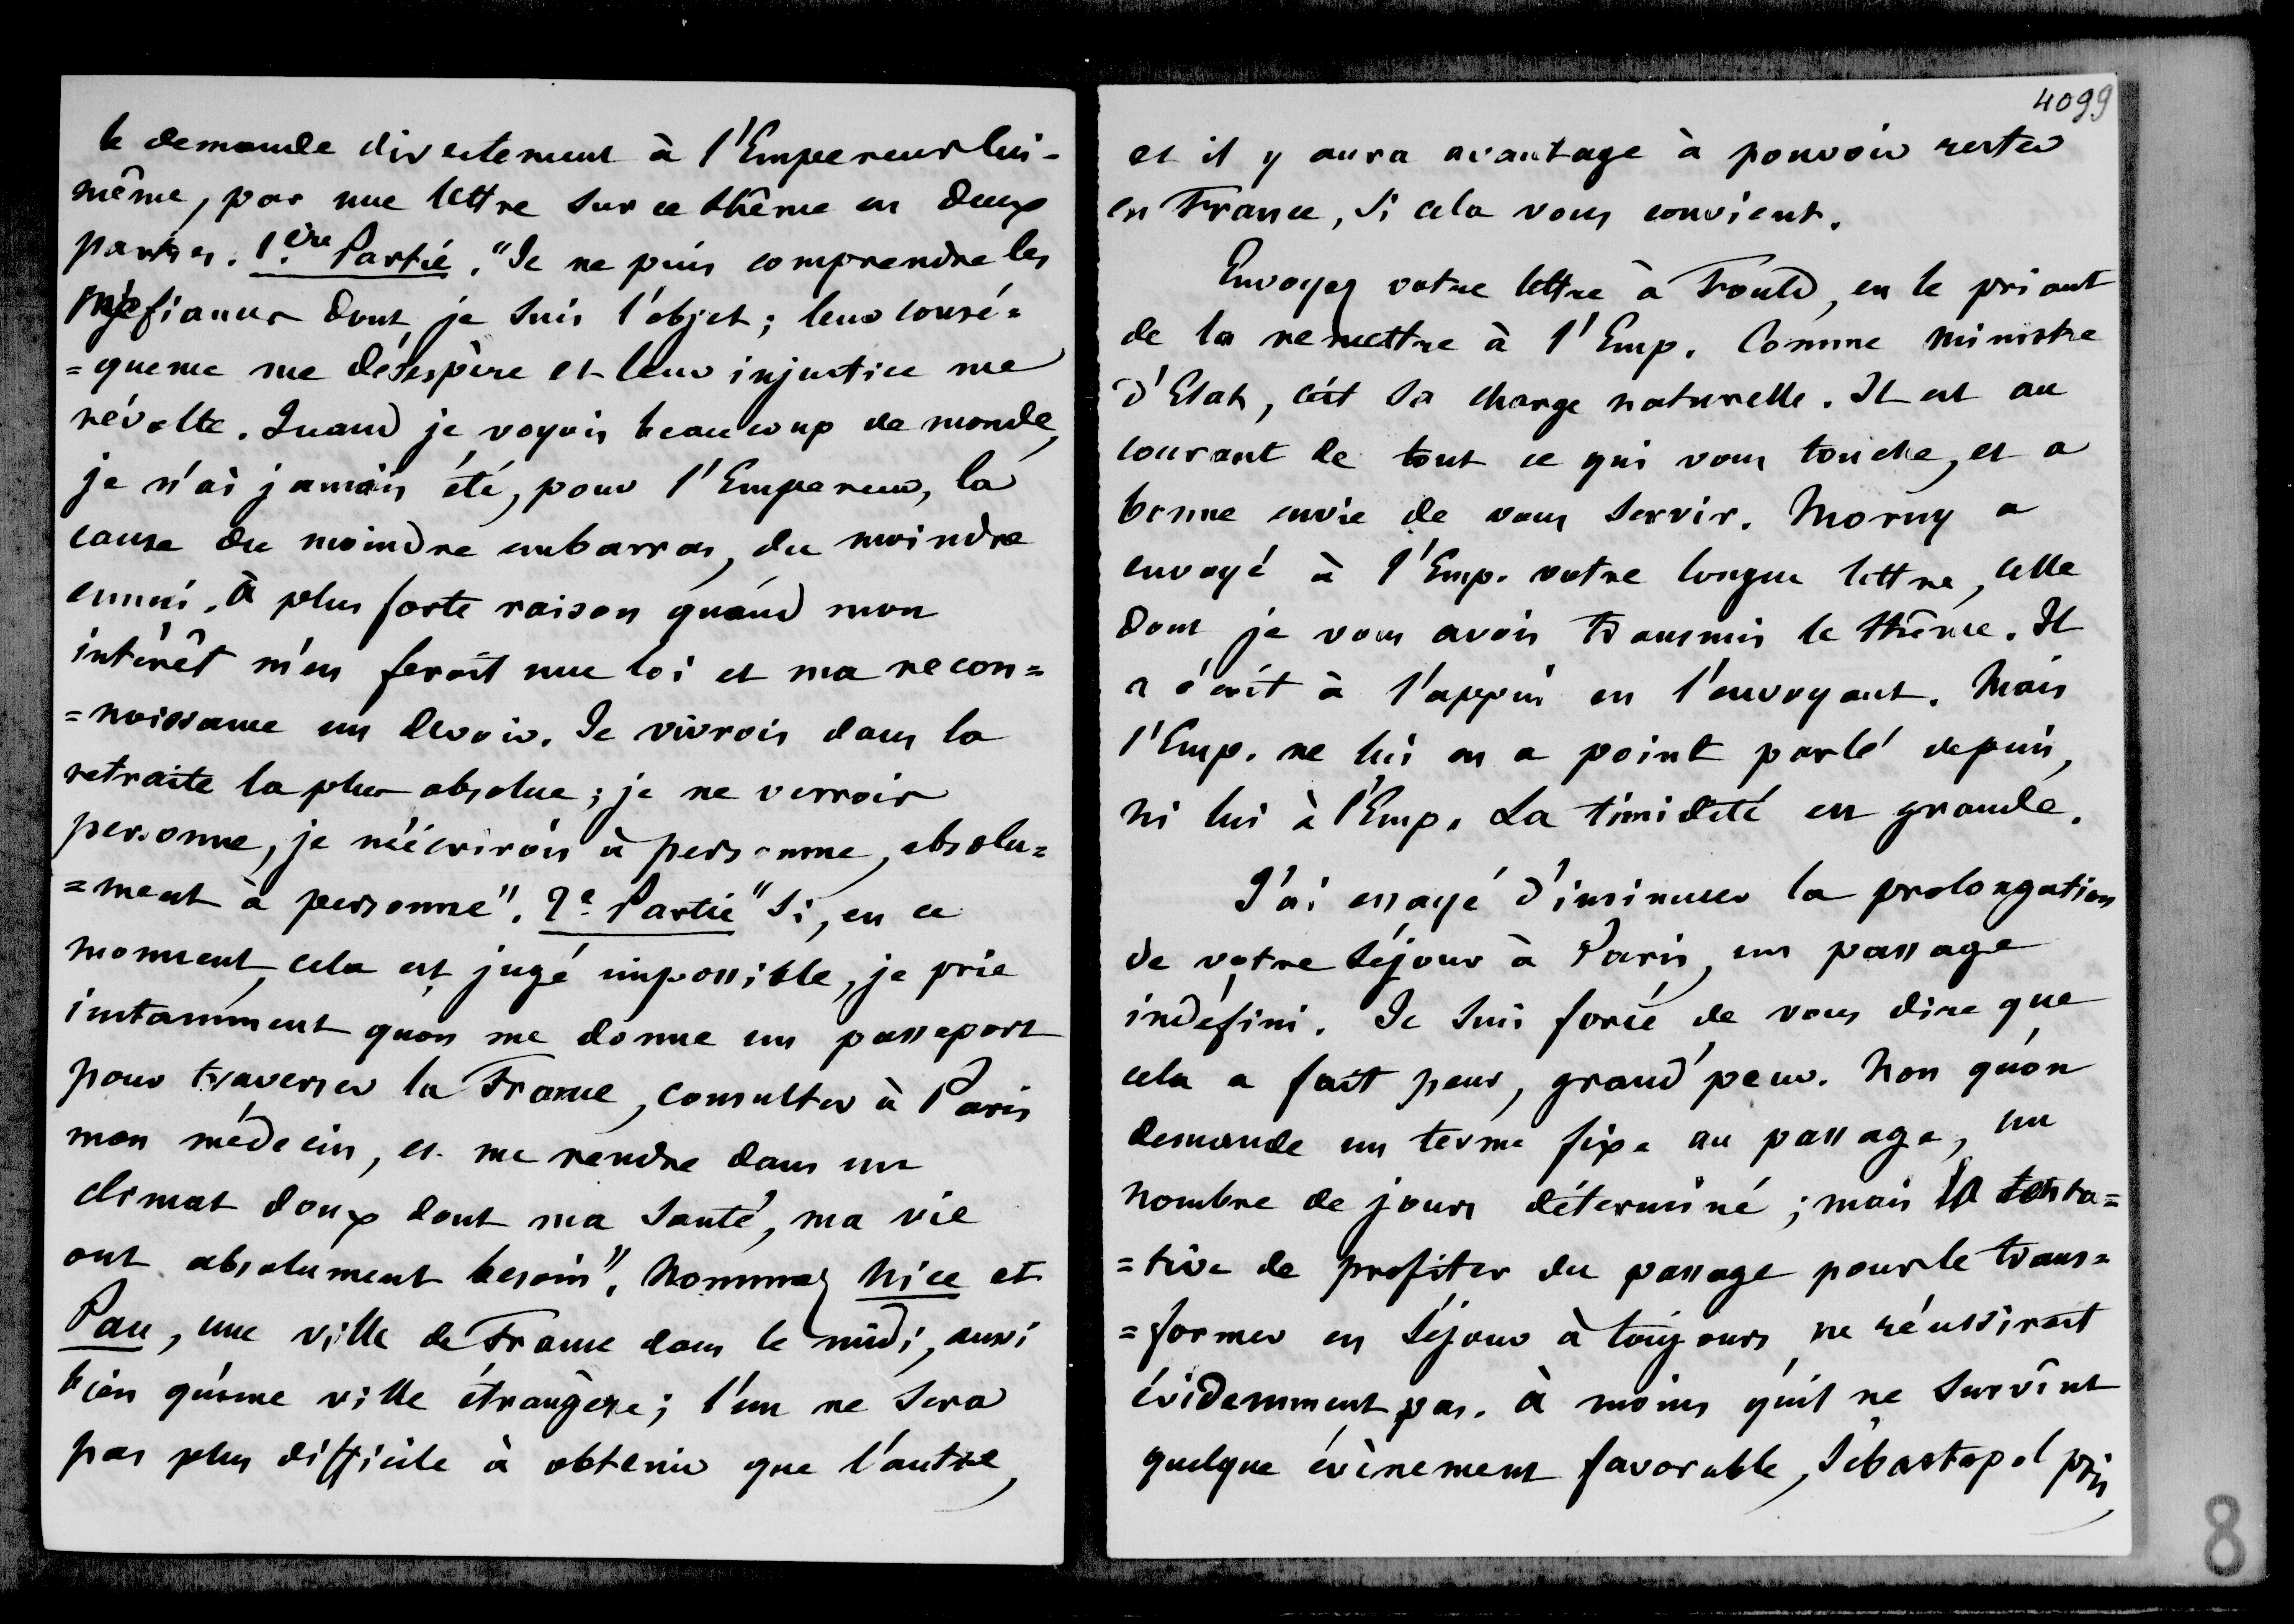 le demande directement à l'Empereur lui-
même, par une lettre sur ce thême en deux
parties. 1.ère Partie. "Je ne puis comprendre les
méfiances dont je suis l'objet ; leur consé=
=quence me désespère et leur injustice me
révolte. Quand je voyois beaucoup de monde,
je n'ai jamais été, pour l'Empereur, la
cause du moindre embarras, du moindre
ennui. à plus forte raison quand mon
intérêt m'en feroit une loi et ma recon=
=noissance un devoir. Je vivrois dans la
retraite la plus absolue ; je ne verrois
personne, je n'écrirois à personne, absolu=
=ment à personne". 2e Partie "Si, en ce
moment, cela est jugé impossible, je prie
instamment qu'on me donne un passeport
pour traverser la France, consulter à Paris
mon médecin, et me rendre dans un
climat doux dont ma santé, ma vie
ont absolument besoin". Nommez Nice et
Pau, une ville de France dans le midi, aussi
bien qu'une ville étrangère ; l'un ne sera
pas plus difficile à obtenir que l'autre,
4099
et il y aura avantage à pouvoir rester
en France, si cela vous convient.
Envoyez votre lettre à Fould, en le priant
de la remettre à l'Emp. Comme ministre
d'Etat, c'est sa charge naturelle. Il est au
courant de tout ce qui vous touche, et a
bonne envie de vous servir. Morny a
envoyé à l'Emp. votre longue lettre, celle
dont je vous avois transmis le thême. Il
a écrit à l'appui en l'envoyant. Mais
l'Emp. ne lui en a point parlé depuis,
ni lui à l'Emp. La timidité est grande.
J'ai essayé d'insinuer la prolongation
de votre séjour à Paris, un passage
indéfini. Je suis forcé de vous dire que
cela a fait peur, grand'peur. Non qu'on
demande un terme fixe au passage, un
nombre de jours déterminé ; mais la tenta=
=tive de profiter du passage pour le trans=
=former en séjour à toujours ne réussiroit
évidemment pas. à moins qu'il ne survînt
quelque évènement favorable, Sébastopol pris,
8